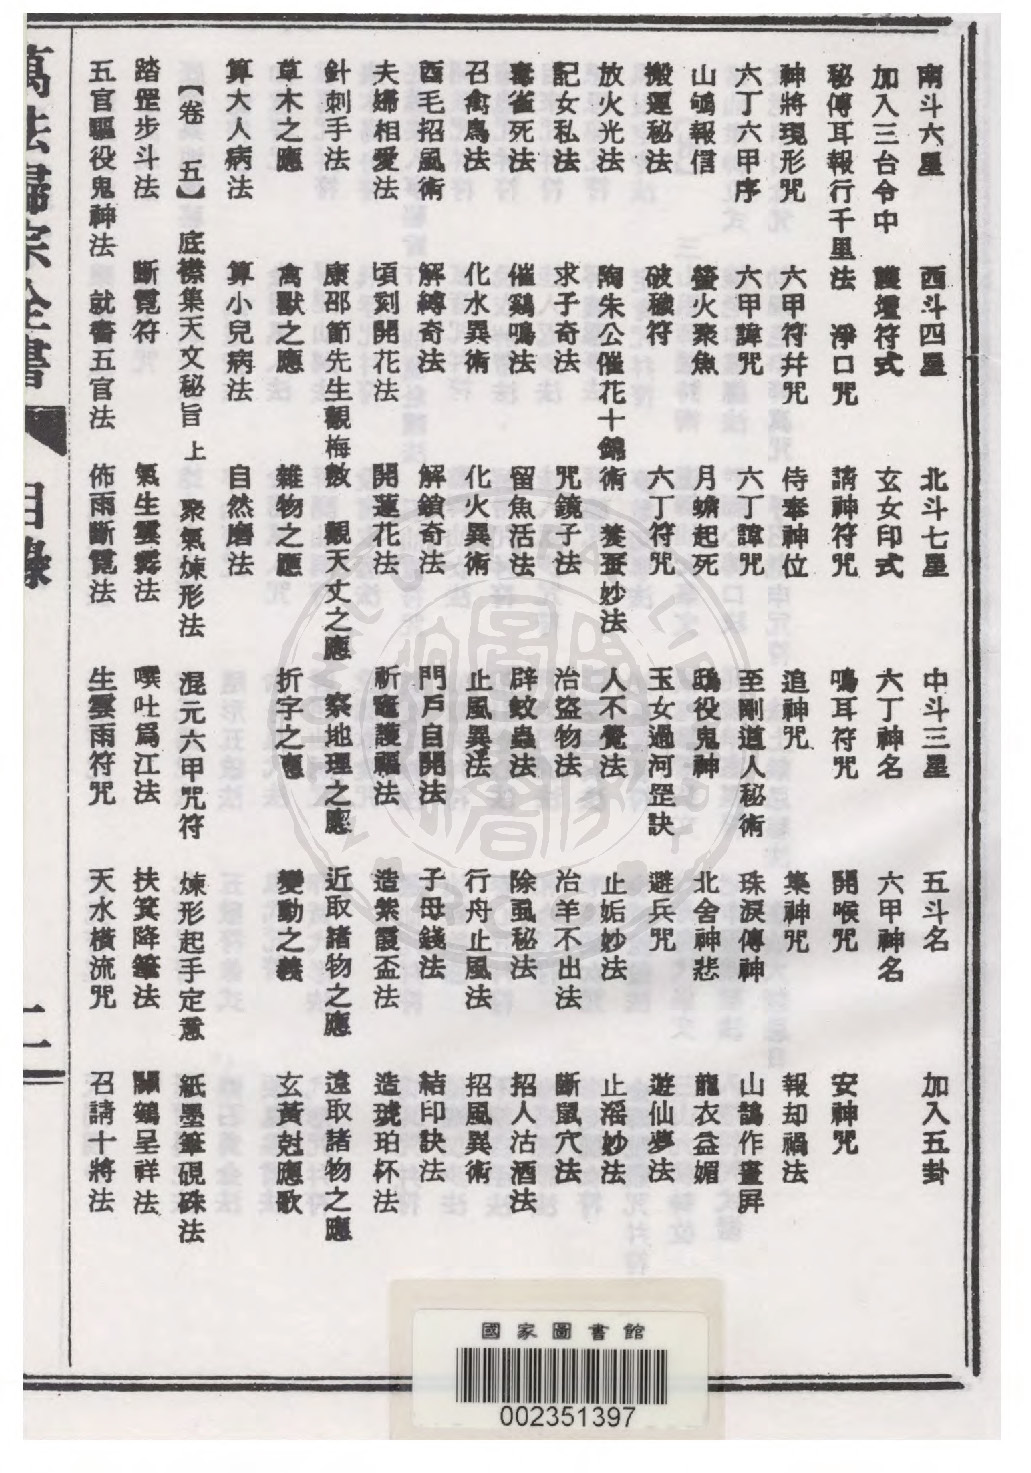 南斗六星 西斗四星 北斗七星 中斗三星 五斗名 加入五卦
加入三台令中 護壇符式 玄女印式 六丁神名 六甲神名
秘傳耳報行千里法 淨口咒 請神符咒 鳴耳符咒 開喉咒 安神咒
神將現形咒 六甲符幷咒 侍奉神位 追神咒 集神咒 報却禍法
六丁六甲序 六甲諱咒 六丁諱咒 至剛道人秘術 珠淚傳神 山鵲作畫屏
山鳴報信 螢火聚魚 月蟾起死 鴟役鬼神 北舍神悲 龍衣益媚
搬運秘法 破穢符 六丁符咒 玉女過河罡訣 避兵咒 遊仙夢法
放火光法 陶朱公催花十錦術 養蚕妙法 人不覺法 止妬妙法 止淫妙法
記女私法 求子奇法 咒鏡子法 治盜物法 治羊不出法 斷鼠穴法
毒雀死法 催鷄鳴法 留魚活法 辟蚊蟲法 除虱秘法 招人沽酒法
召禽鳥法 化水異術 化火異術 止風異法 行舟止風法 招風異術
酉毛招風術 解縛奇法 解鎖奇法 門戶自開法 子母錢法 結印訣法
夫婦相愛法 頃刻開花法 開蓮花法 祈竈護福法 造紫霞盃法 造琥珀杯法
針刺手法 康邵節先生觀梅數 觀天文之應 察地理之應 近取諸物之應 遠取諸物之應
草木之應 禽獸之應 雜物之應 折字之應 變動之義 玄黃尅應歌
算大人病法 算小兒病法 自然磨法
【卷五】底襟集天文秘旨上 聚氣煉形法 混元六甲咒符 煉形起手定意 紙墨筆硯硃法
踏罡步斗法 斷霓符 氣生雲霧法 噀吐爲江法 扶箕降筆法 關鶴呈祥法
五官驅役鬼神法 就書五官法 佈雨斷霓法 生雲雨符咒 天水橫流咒 召請十將法
萬法歸宗全書 目錄 二
國家圖書館
002351397